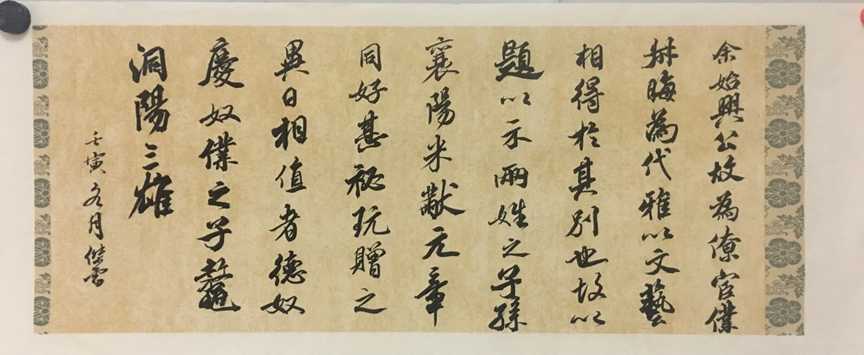 余始興公故為僚宦僕
叔晦為代雅以文藝
相得於其別也故以
題以示兩姓之子孫
襄陽米黻元章
同好甚祕玩贈之
異日相值者德奴
慶奴僕之子鼇
洞陽三雄
壬寅冬月